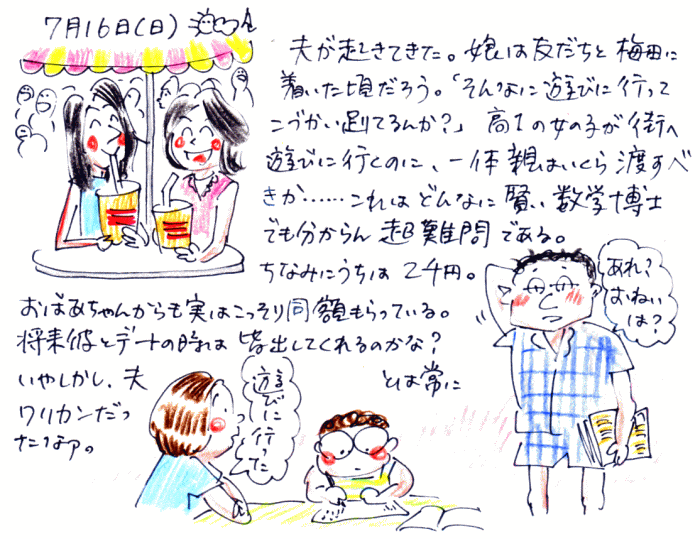 7月16日(日)
夫が起きてきた。娘は友だちと梅田に
着いた頃だろう。「そんなに遊びに行って
こづかい足りてるんか?」 高1の女の子が街へ
遊びに行くのに、一体親はいくら渡すべ
きか……これはどんなに賢い数学博士
でも分からん超難問である。
ちなみにうちは24円。
おばあちゃんからも実はこっそり同額もらっている。
将来彼とデートの時は皆出してくれるのかな?
いやしかし、夫とは常に
ワリカンだっ
たなァ。
遊びに
行った
あれ?
おねぃ
は?